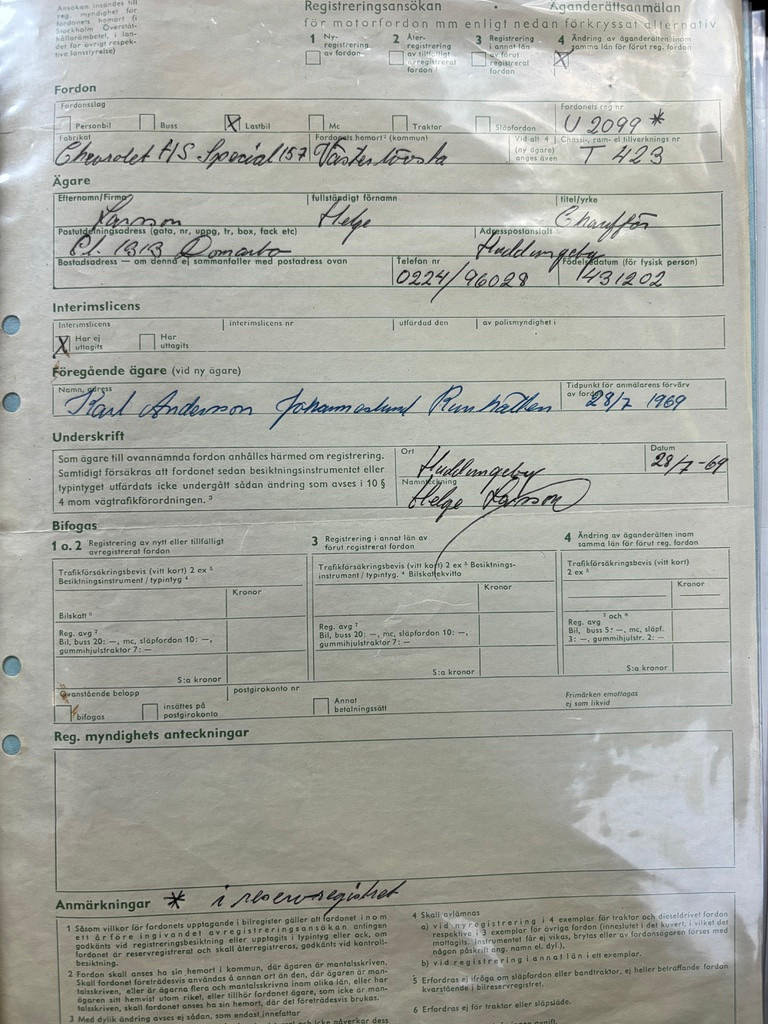 Ansökan insändes till
reg. myndighet för
fordonets hemort (i
Stockholm Överståt-
hållarämbetet, i lan-
det för övrigt respek-
tive länsstyrelse)
Registreringsansökan • Äganderättsanmälan
för motorfordon mm enligt nedan förkryssat alternativ
1 Ny-
registrering
av fordon
2 Åter-
registrering
av tillfälligt
avregistrerat
fordon
3 Registrering
i annat län
av förut
registrerat
fordon
4 Ändring av äganderätten inom
samma län för förut reg. fordon
X
Fordon
Fordonsslag
Personbil Buss X Lastbil Mc Traktor Släpfordon
Fordonets reg nr
U 2099 *
Fabrikat
Chevrolet H/S Special 157
Fordonets hemort² (kommun)
Västerlövsta
Vid alt 4
(ny ägare)
anges även
Chassi-, ram- el tillverknings nr
T 423
Ägare
Efternamn/Firma
Larsson
fullständigt förnamn
Helge
titel/yrke
Chaufför
Postutdelningsadress (gata, nr, uppg, tr, box, fack etc)
Pl. 1313 Domarbo
Adresspostanstalt
Huddungeby
Bostadsadress — om denna ej sammanfaller med postadress ovan
Telefon nr
0224/96028
Födelsedatum (för fysisk person)
431202
Interimslicens
Interimslicens
X Har ej
uttagits
Har
uttagits
interimslicens nr
utfärdad den
av polismyndighet i
Föregående ägare (vid ny ägare)
Namn, adress
Karl Andersson Johanneslund Runhällen
Tidpunkt för anmälarens förvärv
av fordonet
28/7 1969
Underskrift
Som ägare till ovannämnda fordon anhålles härmed om registrering.
Samtidigt försäkras att fordonet sedan besiktningsinstrumentet eller
typintyget utfärdats icke undergått sådan ändring som avses i 10 §
4 mom vägtrafikförordningen. ³
Ort
Huddungeby
Datum
28/7-69
Namnteckning
Helge Larsson
Bifogas
1 o. 2 Registrering av nytt eller tillfälligt
avregistrerat fordon
Trafikförsäkringsbevis (vitt kort) 2 ex ⁵
Besiktningsinstrument / typintyg ⁴
Kronor
Bilskatt ⁶
Reg. avg ⁷
Bil, buss 20: —, mc, släpfordon 10: —,
gummihjulstraktor 7: —
S:a kronor
3 Registrering i annat län av
förut registrerat fordon
Trafikförsäkringsbevis (vitt kort) 2 ex ⁵ Besiktnings-
instrument / typintyg. ⁴ Bilskattekvitto
Kronor
Reg. avg ⁷
Bil, buss 20: —, mc, släpfordon 10: —,
gummihjulstraktor 7: —
S:a kronor
4 Ändring av äganderätten inom
samma län för förut reg. fordon
Trafikförsäkringsbevis (vitt kort)
2 ex ⁵
Kronor
Reg. avg ⁷ och ⁸
Bil, buss 5: —, mc, släpf.
3: —, gummihjulstr. 2: —
S:a kronor
Ovanstående belopp
bifogas
insättes på
postgirokonto
postgirokonto nr
Annat
betalningssätt
Frimärken emottagas
ej som likvid
Reg. myndighets anteckningar
Anmärkningar * i reservregistret
1 Såsom villkor för fordonets upptagande i bilregister gäller att fordonet inom
ett år före ingivandet av registreringsansökan antingen
godkänts vid registreringsbesiktning eller upptagits i typintyg eller ock, om
fordonet är reservregistrerat och skall återregistreras, godkänts vid kontroll-
besiktning.
2 Fordon skall anses ha sin hemort i kommun, där ägaren är mantalsskriven.
Skall fordonet företrädesvis användas å annan ort än den, där ägaren är man-
talsskriven, eller är ägaren flera och mantalsskrivna inom olika län, eller har
ägaren sitt hemvist utom riket, eller tillhör fordonet ägare, som icke är man-
talsskriven, skall fordonet anses ha sin hemort, där det företrädesvis brukas.
3 Med dylik ändring avses ej sådan, som endast innefattar
4 Skall avlämnas
a) vid nyregistrering i 4 exemplar för traktor och dieseldrivet fordon
respektive i 3 exemplar för övriga fordon (inneslutet i det kuvert, i vilket det
mottagits. Instrumentet får ej vikas, brytas eller av fordonsägaren förses med
någon påskrift ang. namn el. dyl.).
b) vid registrering i annat län i ett exemplar.
5 Erfordras ej ifråga om släpfordon eller bandtraktor, ej heller beträffande fordon
kvarstående i bilreservregistret.
6 Erfordras ej för traktor eller släpsläde.